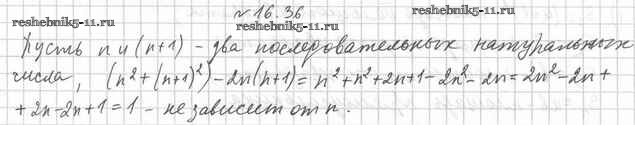 №16.36
reshebnik5-11.ru
reshebnik5-11.ru
reshebnik5-11.ru
Пусть n и (n+1) - два последовательных натуральных
числа, (n²+(n+1)²)-2n(n+1)=n²+n²+2n+1-2n²-2n=2n²-2n+
+2n-2n+1=1 - не зависет от n.